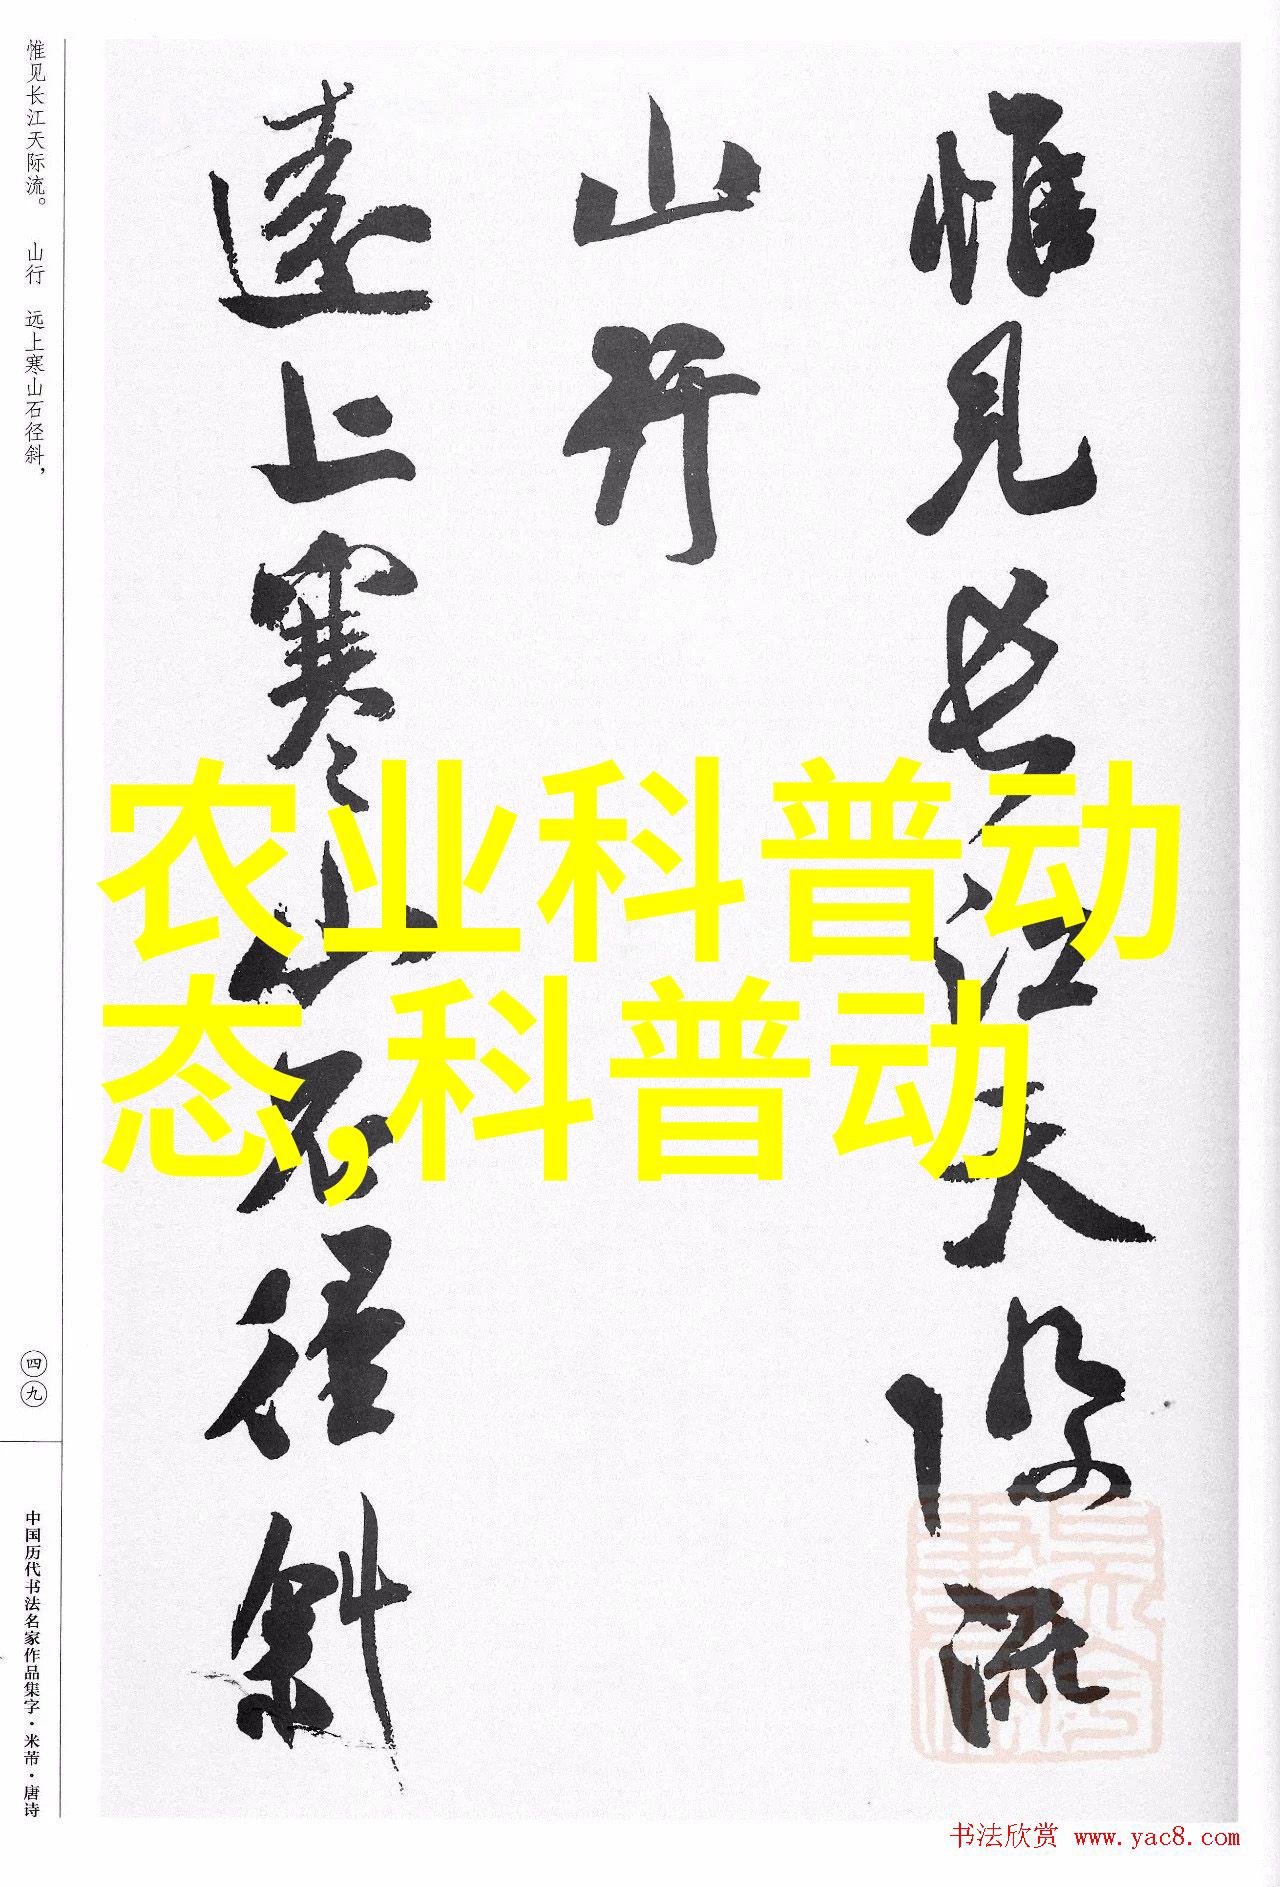 惟见长江天际流。 山行 远上寒山石径斜，
惟見长江天际流
山行
遠上寒山石径斜
农业科普动
态,科普动
四九
中国历代书法名家作品集字·米芾·唐诗
书法欣赏 www.yac8.com